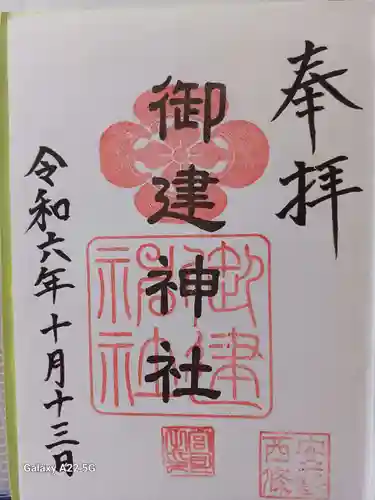 奉拝
御建神社
御建神社
令和六年十月十三日
西條
Galaxy A22 5G